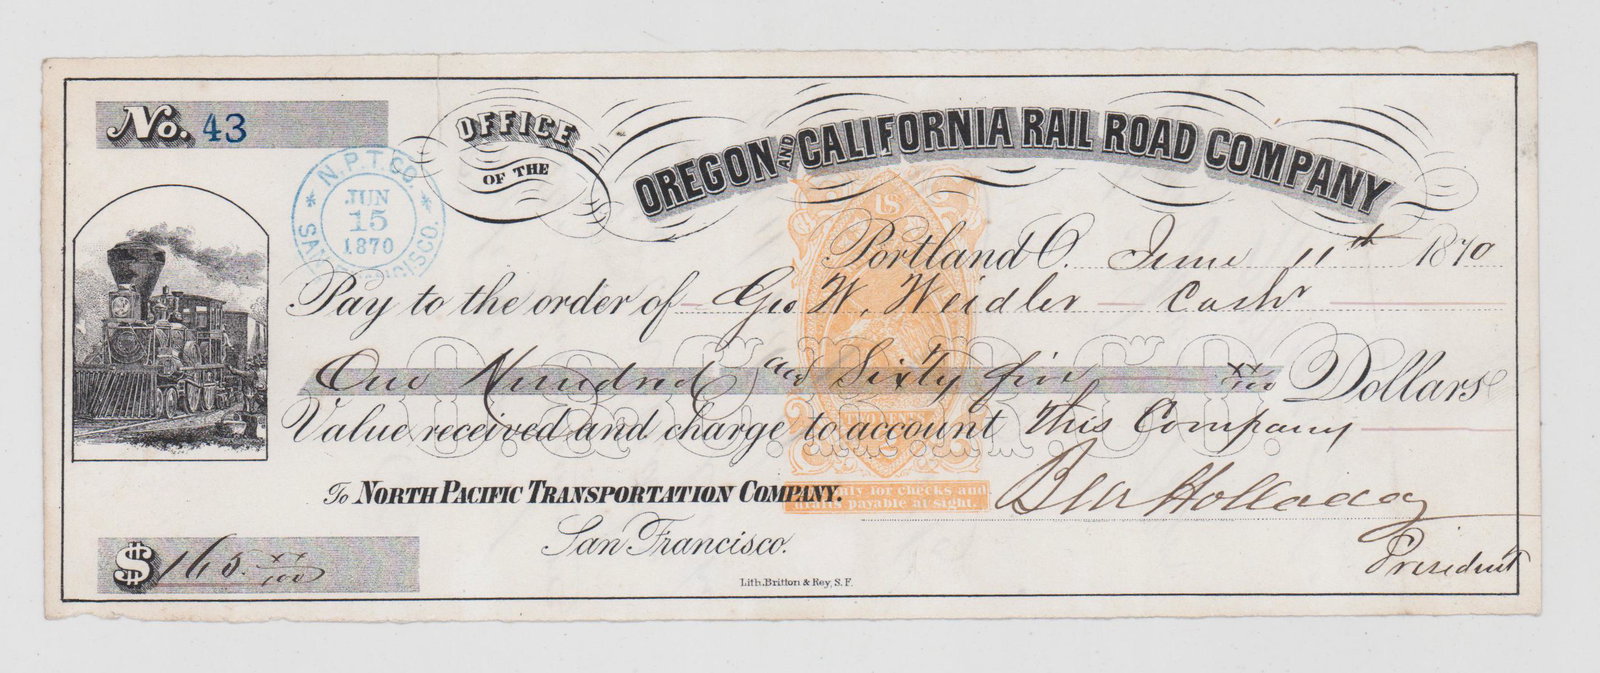 No. 43
OFFICE
OF THE
OREGON AND CALIFORNIA RAIL ROAD COMPANY
N.P.T.CO.
JUN
15
1870
SAN FRANCISCO.
Portland O. June 11th 1870
Pay to the order of Geo W. Weidler Cashr
One Hundred and Sixty five xx/100 Dollars
O.&C.R.R.CO.
Value received and charge to account This Company
TWO CENTS
To NORTH PACIFIC TRANSPORTATION COMPANY.
only for checks and
drafts payable at sight.
Ben Holladay
San Francisco.
President
$165 xx/100
Lith. Britton & Rey, S. F.